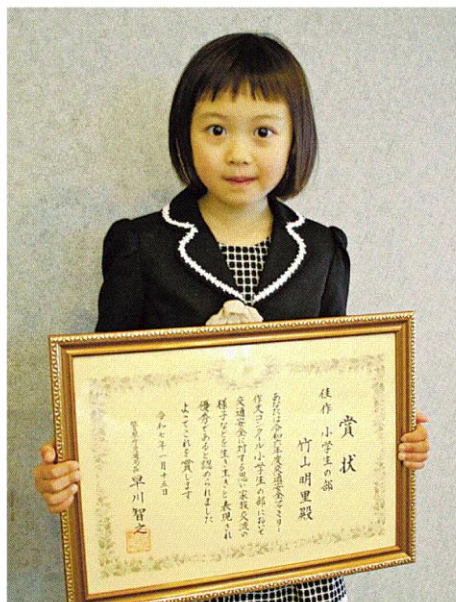 賞状
佳作 小学生の部
竹山明里殿
あなたは令和六年度交通安全ファミリー
作文コンクール小学生の部において
交通安全に対する思い家族交流の
様子などを生き生きと表現され
優秀であると認められました
よってこれを賞します
令和七年一月十五日
警察庁交通局長 早川智之